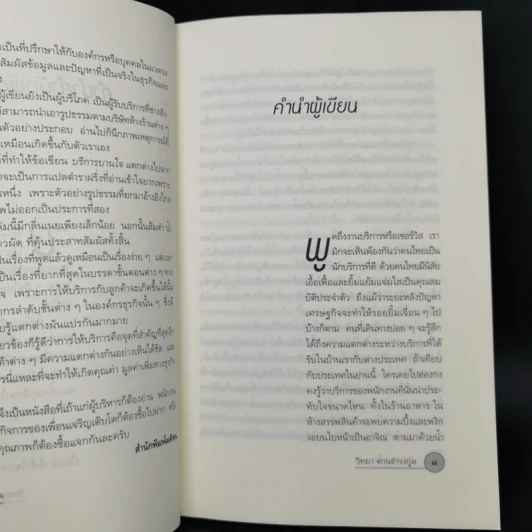 เป็นที่ปรึกษาให้กับองค์กรหรือบุคคลในแวดวง
สัมผัสข้อมูลและปัญหาที่เป็นจริงในธุรกิจและ
ผู้เขียนยังเป็นผู้บริโภค เป็นผู้รับบริการที่ช่างสัง
สามารถนำเอารูปธรรมตามบริษัทห้างร้านต่าง ๆ
ตัวอย่างประกอบ อ่านไปก็นึกภาพเหตุการณ์ได้
เหมือนเกิดขึ้นกับตัวเราเอง
ที่ทำให้ข้อเขียน บริการบานใจ แตกต่างไปจาก
จะเป็นการแปลตำราฝรั่งที่อ่านเข้าใจยากเพราะ
หนึ่ง เพราะตัวอย่างรูปธรรมที่ยกมาอ้างอิงไกล
พไม่ออกเป็นประการที่สอง
ล่มนี้มีกลิ่นนมเพียงเล็กน้อย นอกนั้นส้มตำ น้ำ
วผัด ที่คุ้นประสาทสัมผัสทั้งสิ้น
ป็นเรื่องที่พูดแล้วดูเหมือนเป็นเรื่องง่าย ๆ แต่เอา
เป็นเรื่องที่ยากที่สุดในบรรดาขั้นตอนต่าง ๆ ทาง
จ เพราะการให้บริการกับลูกค้าจะเกิดขึ้นได้นั้น
ากรลำดับชั้นต่าง ๆ ในองค์กรธุรกิจนั้น ๆ ซึ่งมี
มรู้แตกต่างผันแปรกันมากมาย
วข้องก็รู้ดีว่าการให้บริการคือจุดที่สำคัญที่สุดอีก
ค้าต่าง ๆ มีความแตกต่างกันอย่างเห็นได้ชัด และ
รนี่แหละที่จะทำให้เกิดคุณค่า มูลค่าเพิ่มทางธุรกิจ
จึงเป็นหนังสือที่เถ้าแก่ผู้บริหารก็ต้องอ่าน พนักงาน
กิจการของเพื่อนเจริญเติบโตก็ต้องซื้อไปฝาก
คุณภาพก็ต้องซื้อแจกกันละครับ
คำนำผู้เขียน
พูดถึงงานบริการหรือเซอร์วิส เรา
มักจะเห็นพ้องกันว่าคนไทยเป็น
นักบริการที่ดี ด้วยคนไทยมีนิสัย
เอื้อเฟื้อและยิ้มแย้มแจ่มใสเป็นคุณสม
บัติประจำตัว ถึงแม้ว่าระยะหลังปัญหา
เศรษฐกิจจะทำให้รอยยิ้มเจื่อน ๆ ไป
บ้างก็ตาม คนที่เดินทางบ่อย ๆ จะรู้สึก
ได้ถึงความแตกต่างระหว่างบริการที่ได้
รับในบ้านเรากับต่างประเทศ ถ้าเทียบ
กับประเทศในย่านนี้ ใครเคยไปฮ่องกง
คงรู้ว่าบริการของพนักงานที่นั่นน่าประ
ทับใจขนาดไหน ทั้งในร้านอาหาร ใน
ห้างสรรพสินค้าจะพบความบึ้งและหงิก
งอบนใบหน้าเป็นอาจิณ ตามมาด้วยน้ำ
วิทยา ด่านธำรงกูล